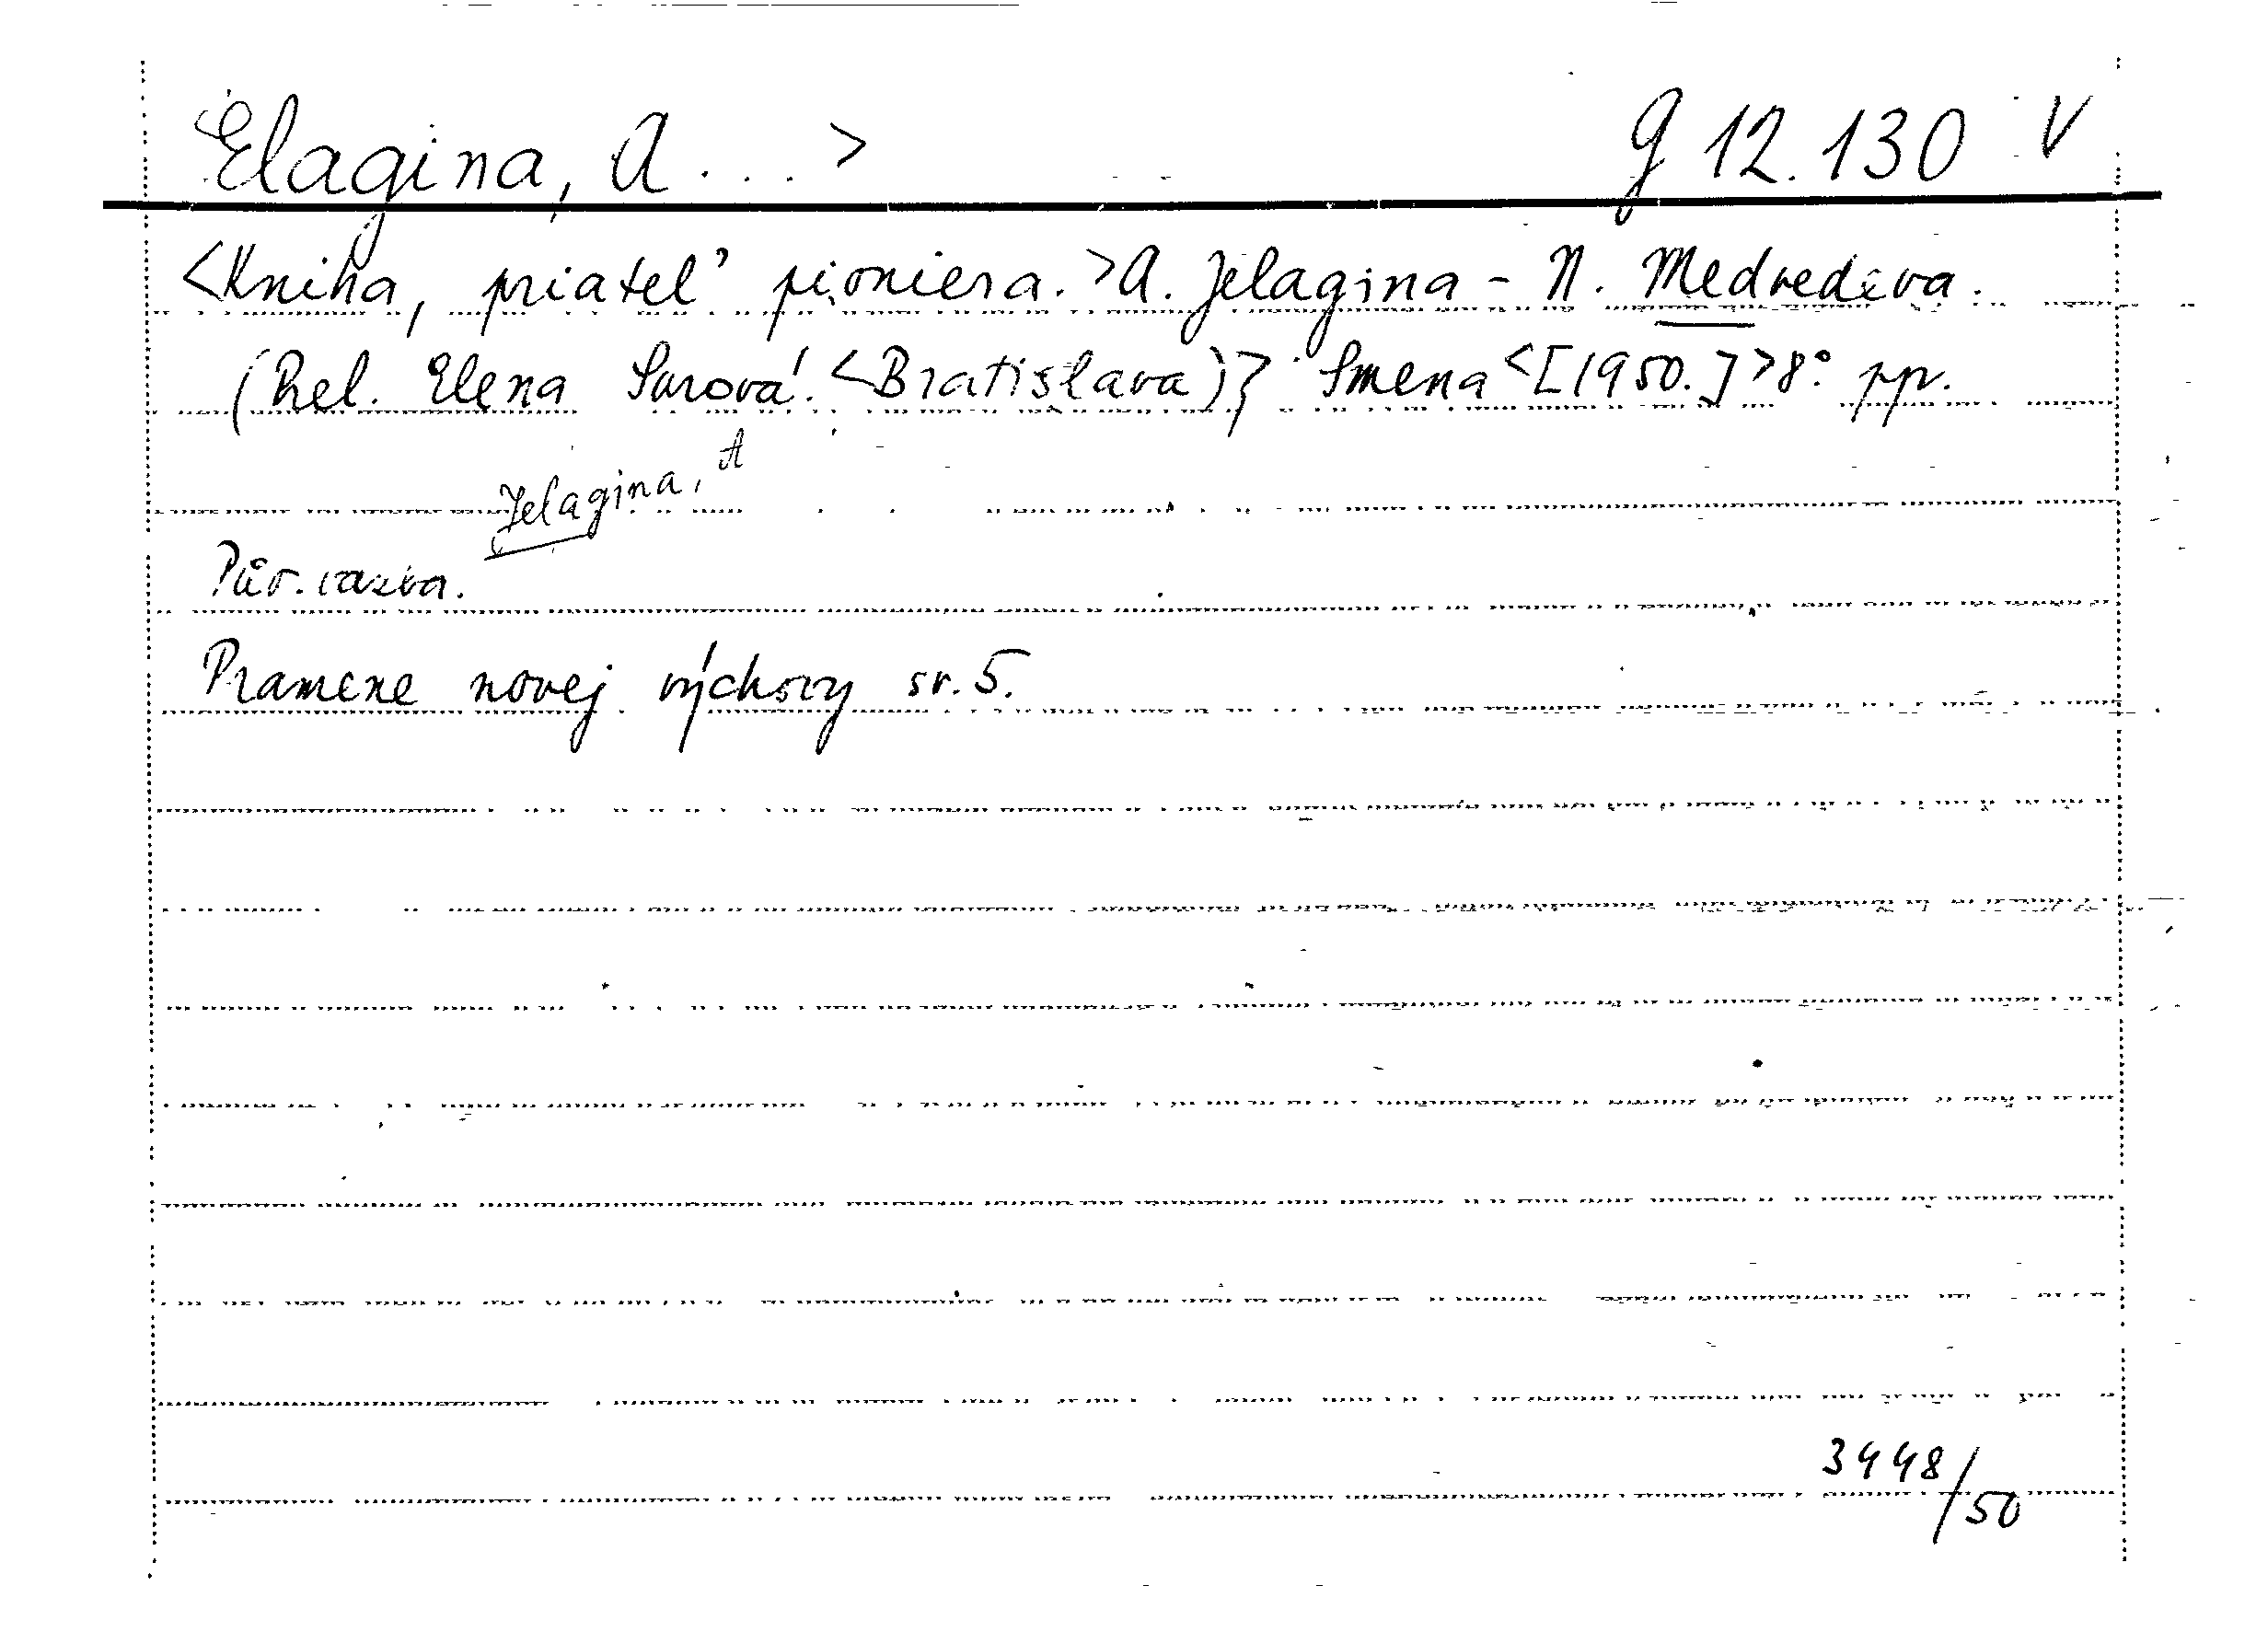 Elagina, A...> g 12.130 V
<Kniha, priateľ pioniera.>A. Jelagina - N. Medveděva.
(Rel. Elena Surová. <Bratislava)> Smena <[1950.]>8° pp.
Jelagina, A
Pův. vazba.
Pramene novej výchovy sv. 5.
3448/50